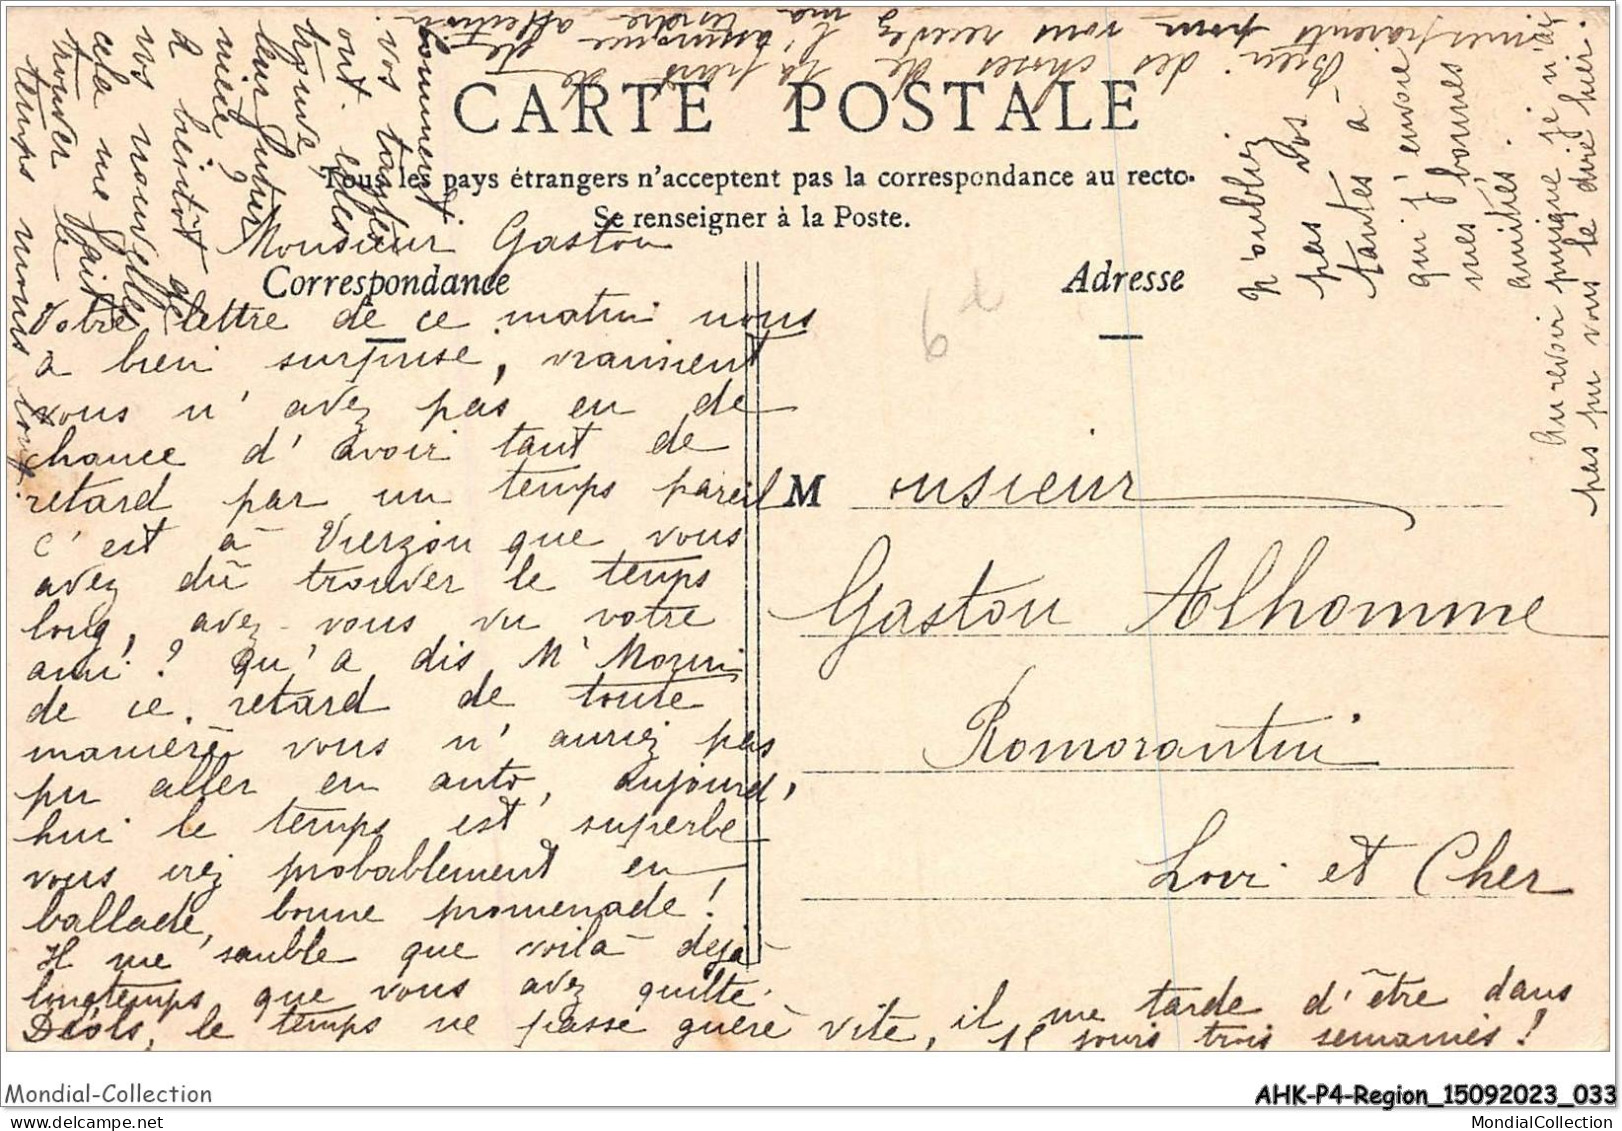 CARTE POSTALE
Tous les pays étrangers n'acceptent pas la correspondance au recto.
Se renseigner à la Poste.
Correspondance
Adresse
Monsieur Gaston
Votre lettre de ce matin nous
a bien surprise, vraiment
vous n'avez pas eu de
chance d'avoir tant de
retard par un temps pareil
c'est à Vierzon que vous
avez dû trouver le temps
long, avez-vous vu votre
ami? Qu'a dis Mr
de ce retard de toute
manière vous n'auriez pas
pu aller en auto, aujourd'
hui le temps est superbe
vous irez probablement en
ballade, bonne promenade!
Il me semble que voilà déjà
longtemps que vous avez quitté
Déols, le temps ne passe guère vite, il me tarde d'être dans
jours trois semaines!
temps moins long.
trouver le
cela me fait
vos nouvelles
à bientôt de
nièce?
leur future
trouvé
ont-elles
vos tantes
comment
Bien des choses de la part de
mes parents pour vous recevez l'assurance de
ma tendre affection.
N'oubliez
pas vos
tantes à
qui j'envoie
mes bonnes
amitiés.
Au revoir puisque je n'ai
pas pu vous le dire hier.
6d
Monsieur
Gaston Alhomme
Romorantin
Loir et Cher
Mondial-Collection
AHK-P4-Region_15092023_033
MondialCollection